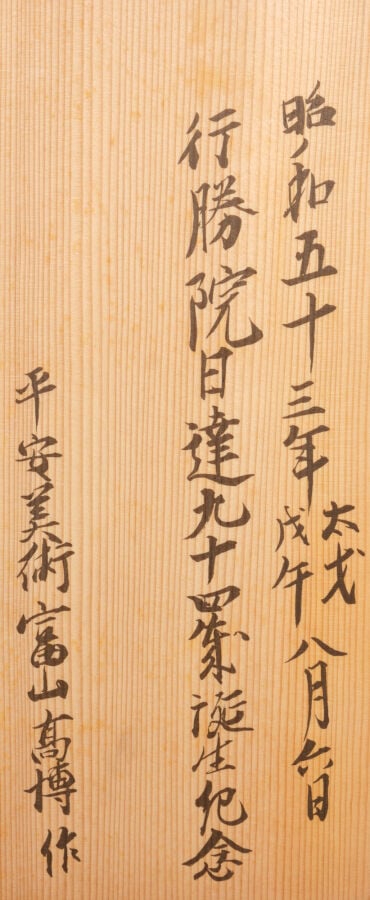 昭和五十三年 太才戊午 八月六日
行勝院日達九十四歳誕生紀念
平安美術 富山高博 作